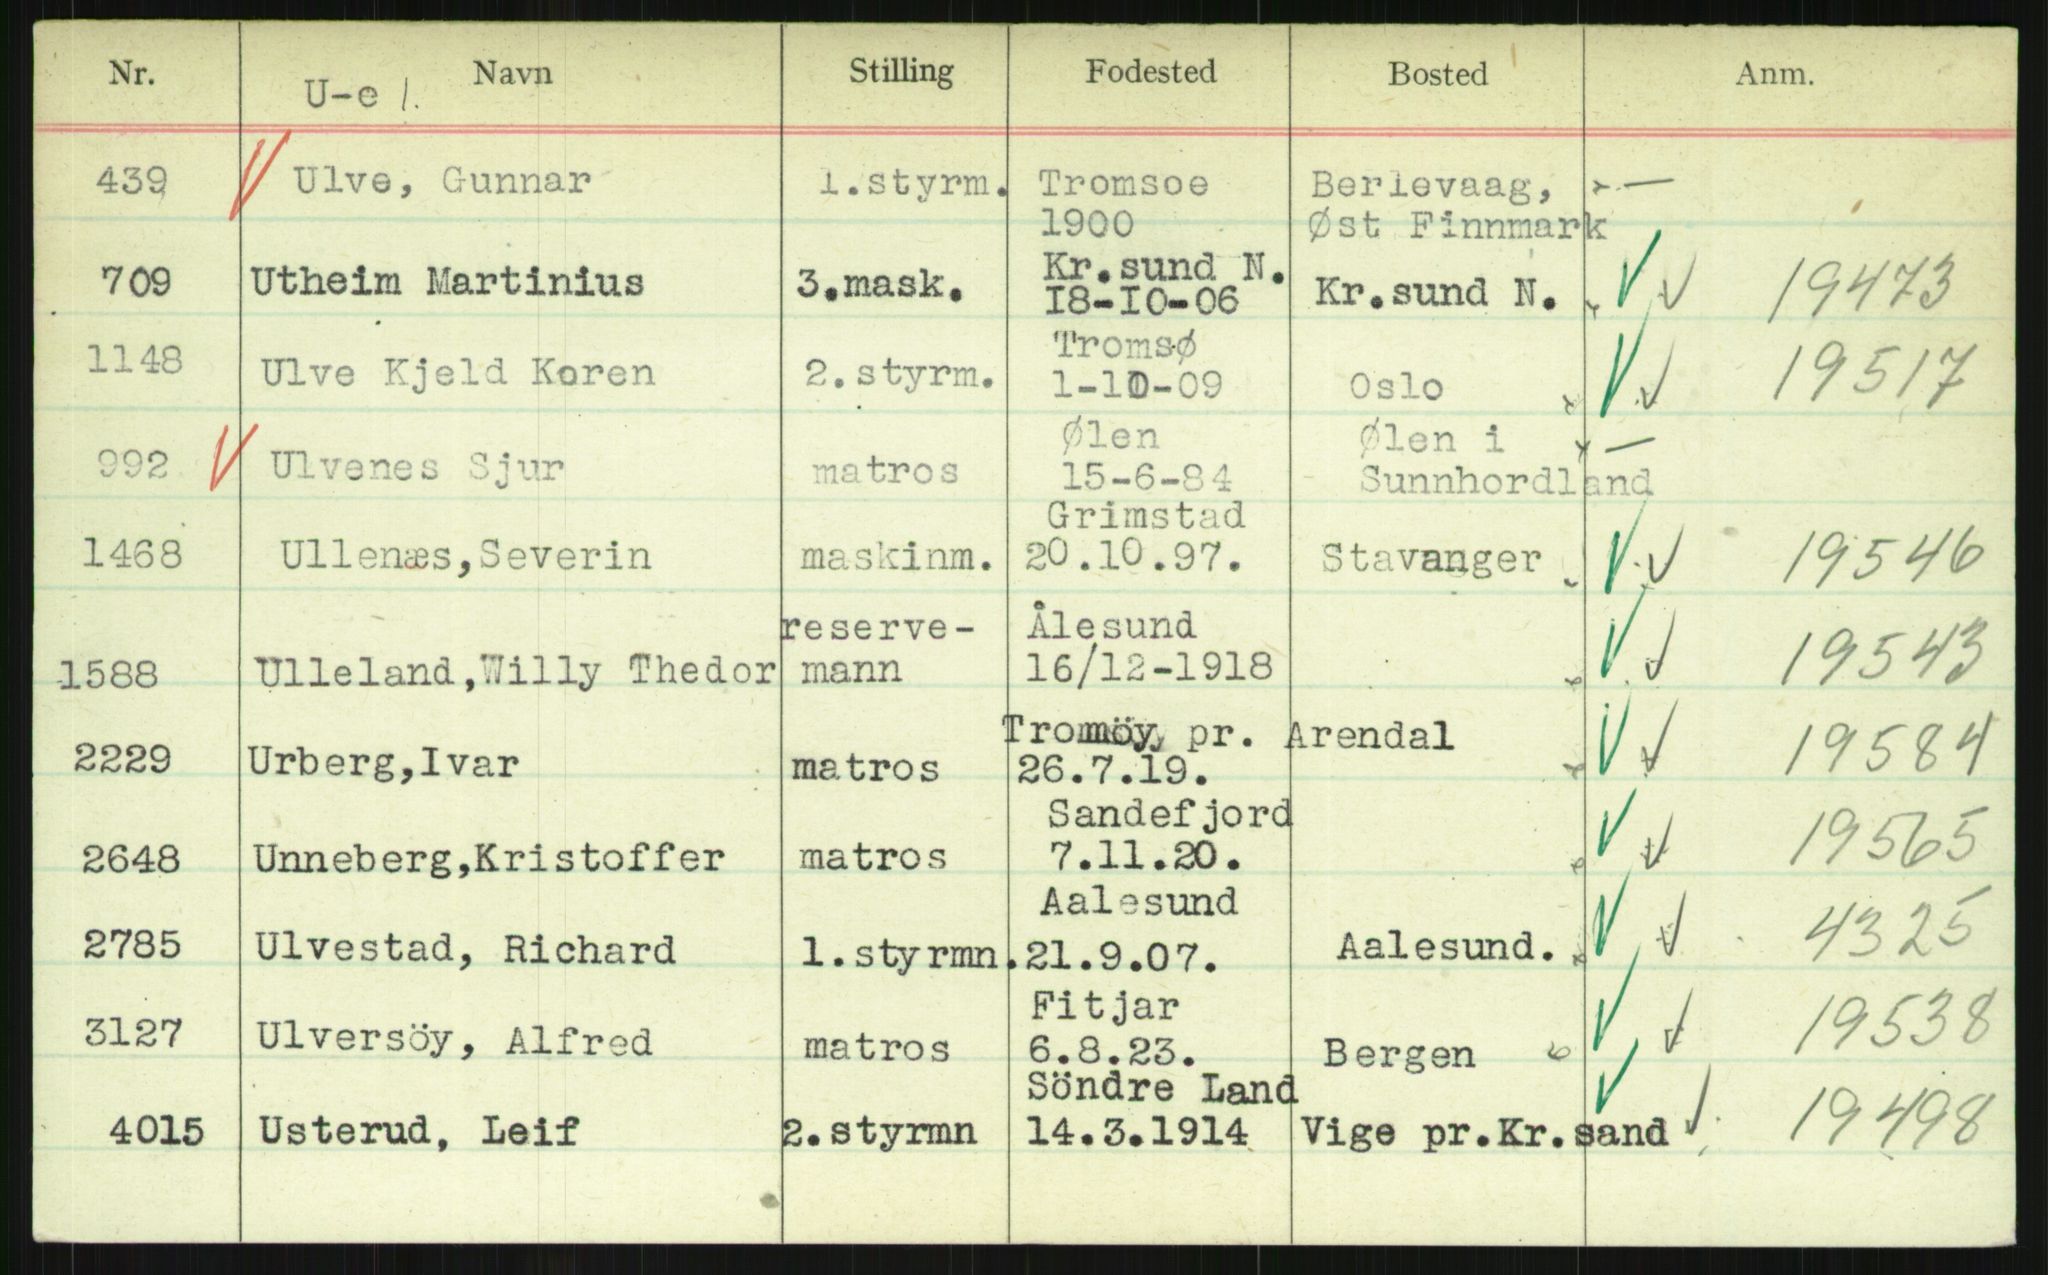 Nr. Navn Stilling Fodested Bosted Anm.
U-e 1.
439 Ulve, Gunnar 1.styrm. Tromsoe Berlevaag, —
1900 Øst Finnmark
709 Utheim Martinius 3.mask. Kr.sund N. Kr.sund N. 19473
18-10-06
1148 Ulve Kjeld Koren 2.styrm. Tromsø Oslo 19517
1-10-09
992 Ulvenes Sjur matros Ølen Ølen i —
15-6-84 Sunnhordland
1468 Ullenæs,Severin maskinm. Grimstad Stavanger 19546
20.10.97.
1588 Ulleland,Willy Thedor reserve- Ålesund 19543
mann 16/12-1918
2229 Urberg,Ivar matros Tromöy pr. Arendal 19584
26.7.19.
2648 Unneberg,Kristoffer matros Sandefjord 19565
7.11.20.
2785 Ulvestad, Richard 1.styrmn. Aalesund Aalesund. 4325
21.9.07.
3127 Ulversöy, Alfred matros Fitjar Bergen 19538
6.8.23.
4015 Usterud, Leif 2.styrmn Söndre Land Vige pr.Kr.sand 19498
14.3.1914